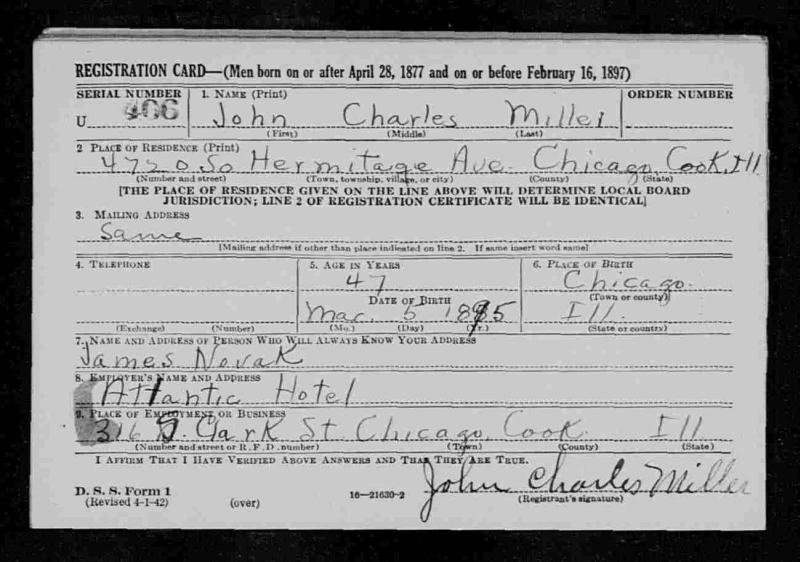 REGISTRATION CARD—(Men born on or after April 28, 1877 and on or before February 16, 1897)
SERIAL NUMBER 1. NAME (Print) ORDER NUMBER
U 466 John Charles Miller
(First) (Middle) (Last)
2 PLACE OF RESIDENCE (Print)
4720 So Hermitage Ave. Chicago, Cook, Ill
(Number and street) (Town, township, village, or city) (County) (State)
[THE PLACE OF RESIDENCE GIVEN ON THE LINE ABOVE WILL DETERMINE LOCAL BOARD
JURISDICTION; LINE 2 OF REGISTRATION CERTIFICATE WILL BE IDENTICAL]
3. MAILING ADDRESS
Same
[Mailing address if other than place indicated on line 2. If same insert word same]
4. TELEPHONE 5. AGE IN YEARS 6. PLACE OF BIRTH
47 Chicago.
DATE OF BIRTH (Town or county)
Mar. 5 1895 Ill.
(Exchange) (Number) (Mo.) (Day) (Yr.) (State or country)
7. NAME AND ADDRESS OF PERSON WHO WILL ALWAYS KNOW YOUR ADDRESS
James Novak
8. EMPLOYER'S NAME AND ADDRESS
Atlantic Hotel
9. PLACE OF EMPLOYMENT OR BUSINESS
316 S. Clark St. Chicago Cook. Ill
(Number and street or R. F. D. number) (Town) (County) (State)
I AFFIRM THAT I HAVE VERIFIED ABOVE ANSWERS AND THAT THEY ARE TRUE.
John Charles Miller
D. S. S. Form 1
(Revised 4-1-42) (over) 16—21630-2 (Registrant's signature)